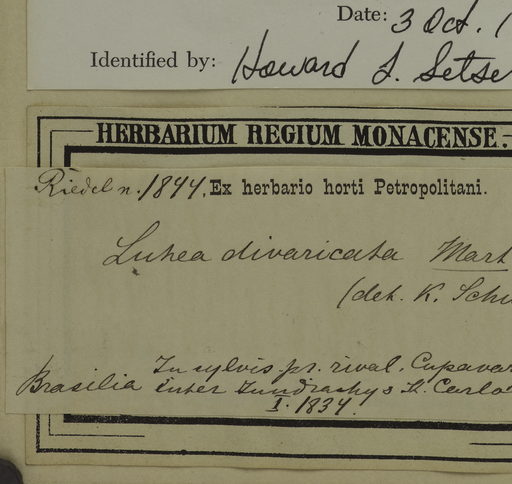 Date: 3 Oct. 1
Identified by: Howard J. Setse
HERBARIUM REGIUM MONACENSE.
Riedel n. 1844. Ex herbario horti Petropolitani.
Luhea divaricata Mart
(det. K. Schu
In sylvis pr. rival.
Brasilia inter & Carlo
I. 1834.